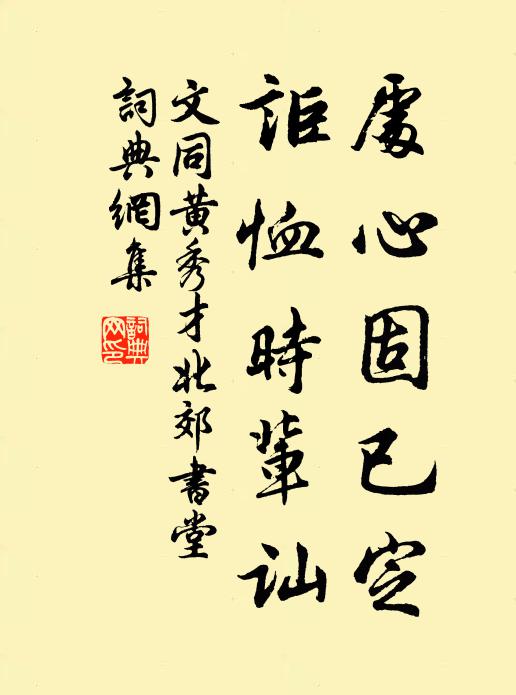 處心固已定
詎恤時輩訕
文同黃秀才北郊書堂
詞典網集
詞典网印